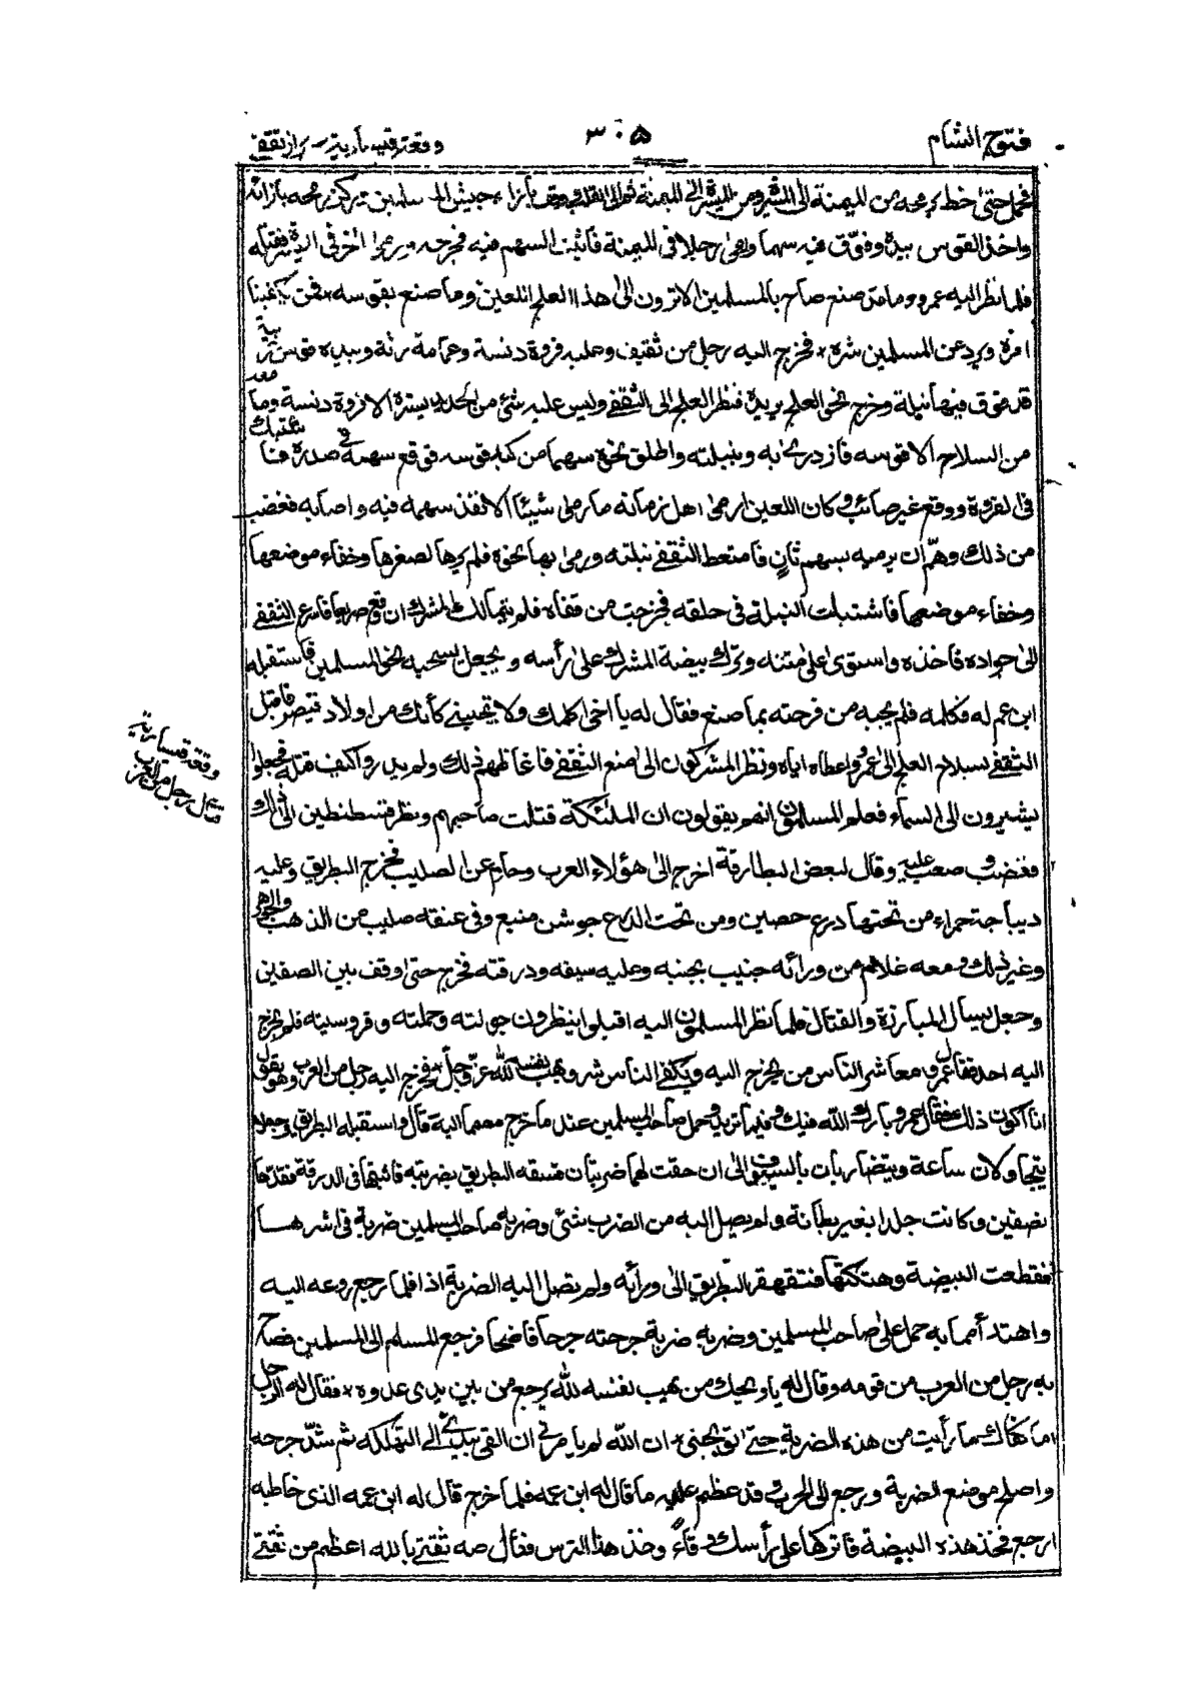 فتوح الشام
٣٠٥
فحمل حتى خط برمحه من الميمنة الى الميسرة ومن الميسرة الى الميمنة ثم الى القلب ووقف بأزاء جيش المسلمين مركز رمحه بازائه
واخذ القوس بيده وفوّق فيه سهما ورمى رجلا فى الميمنة فاثبت السهم فيه فجرحه ورمى اخر فى الميسرة فقتله
فلما نظر اليه عمرو وما قد صنع صاح بالمسلمين الا ترون الى هذا العلج اللعين وما صنع بقوسه فمن يكفينا
امره ويرد عن المسلمين شره فخرج اليه رجل من ثقيف وعليه فروة دنسة وعمامة رثة وبيده قوس عربية
قد فوق فيها نبلة وخرج نحو العلج يريده فنظر العلج الى الثقفى وليس عليه شئ من الحديد يستره الا فروة دنسة وما معه
من السلاح الا قوسه فازدرى به وبنبلته واطلق نحوه سهما من كبد قوسه فوقع سهمه فى صدره فاشتبك
فى الفروة ووقع غير صائب وكان اللعين ارمى اهل زمانه ما رمى شيئا الا نفذ سهمه فيه واصابه فغضب
من ذلك وهمّ ان يرميه بسهم ثانٍ فامتعط الثقفى نبلته ورمى بها نحوه فلم يرها لصغرها وخفاء موضعها
وخفاء موضعها فاشتبلت النبلة فى حلقه فخرجت من قفاه فلم يتمالك المشرك ان وقع صريعا فاسرع الثقفى
الى جواده فاخذه واستوى على متنه وترك بيضة المشرك على رأسه وجعل يسحبه نحو المسلمين فاستقبله
ابن عم له فكلمه فلم يجبه من فرحته بما صنع فقال له يا أخى اكلمك ولا تجيبنى كأنك من اولاد قيصر فاقبل
الثقفى بسلاح العلج الى عمرو واعطاه اياه ونظر المشركون الى صنع الثقفى فاغاظهم ذلك ولم يدروا كيف قتله فجعلوا
يشيرون الى السماء فعلم المسلمون انهم يقولون ان الملئكة قتلت صاحبهم ونظر قسطنطين الى ذلك
فغضب وصعب عليه وقال لبعض البطارقة اخرج الى هؤلاء العرب وحام عن الصليب فخرج البطريق وعليه
ديباجة حمراء من تحتها درع حصين ومن تحت الدرع جوشن منيع وفى عنقه صليب من الذهب والجوهر
وغير ذلك ومعه غلام من ورائه جنيب بجنبه وعليه سيفه ودرقته فخرج حتى وقف بين الصفين
وجعل يسأل المبارزة والقتال فلما نظر المسلمون اليه اقبلوا ينظرون جولته وحملته وفروسيته فلم يخرج
اليه احد فقال عمرو معاشر الناس من يخرج اليه ويكفى الناس شره ويهب نفسه لله عزّ وجلّ فخرج اليه رجل من العرب وهو يقول
انا اكون ذلك فقال عمرو بارك الله فيك وفيما تريد وحمل صاحب المسلمين عند ما خرج مصمما اليه قال واستقبله البطريق وجعلا
يتجاولان ساعة ويتضاربان بالسيوف الى ان حقت لهما ضربتان فسبقه البطريق بضربته فاثبتها فى الدرقة فقدتها
نصفين وكانت جلدا بغير بطانة ولم يصل اليه من الضرب شئ وضربه صاحب المسلمين ضربة فى اثرها
فقطعت البيضة وهتكتها فتقهقر البطريق الى ورائه ولم تصل اليه الضربة اذا فلما رجع روعه اليه
واهتدأ مما به حمل على صاحب المسلمين وضربه ضربة جرحته جرحا فاضحا فرجع المسلم الى المسلمين فصاح
به رجل من العرب من قومه وقال له يا ويحك من يهب نفسه لله يرجع من بين يدى عدوه فقال له الرجل
اما كفاك ما رأيت من هذه الضربة حتى توبخنى ان الله لم يأمرنى ان القى بيدى الى التهلكة ثم شدّ جرحه
واصلح موضع الضربة ورجع الى الحرب وقد عظم عليه ما قال له ابن عمه فلما خرج قال له ابن عمه الذى خاطبه
ارجع فخذ هذه البيضة فاتركها على رأسك وقاءً وخذ هذا الترس فقال صه ثقتى بالله اعظم من ثقتى